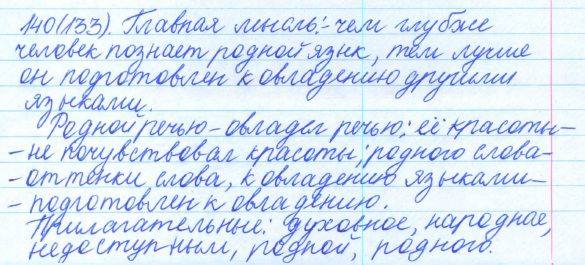 140(133). Главная мысль:- чем глубже
человек познает родной язык, тем лучше
он подготовлен к овладению другими
языками.
Родной речью – овладел речью; её красоты –
– не почувствовал красоты; родного слова –
– оттенки слова, к овладению языками –
– подготовлен к овладению.
Прилагательные: духовное, народная,
недоступным, родной, родного.